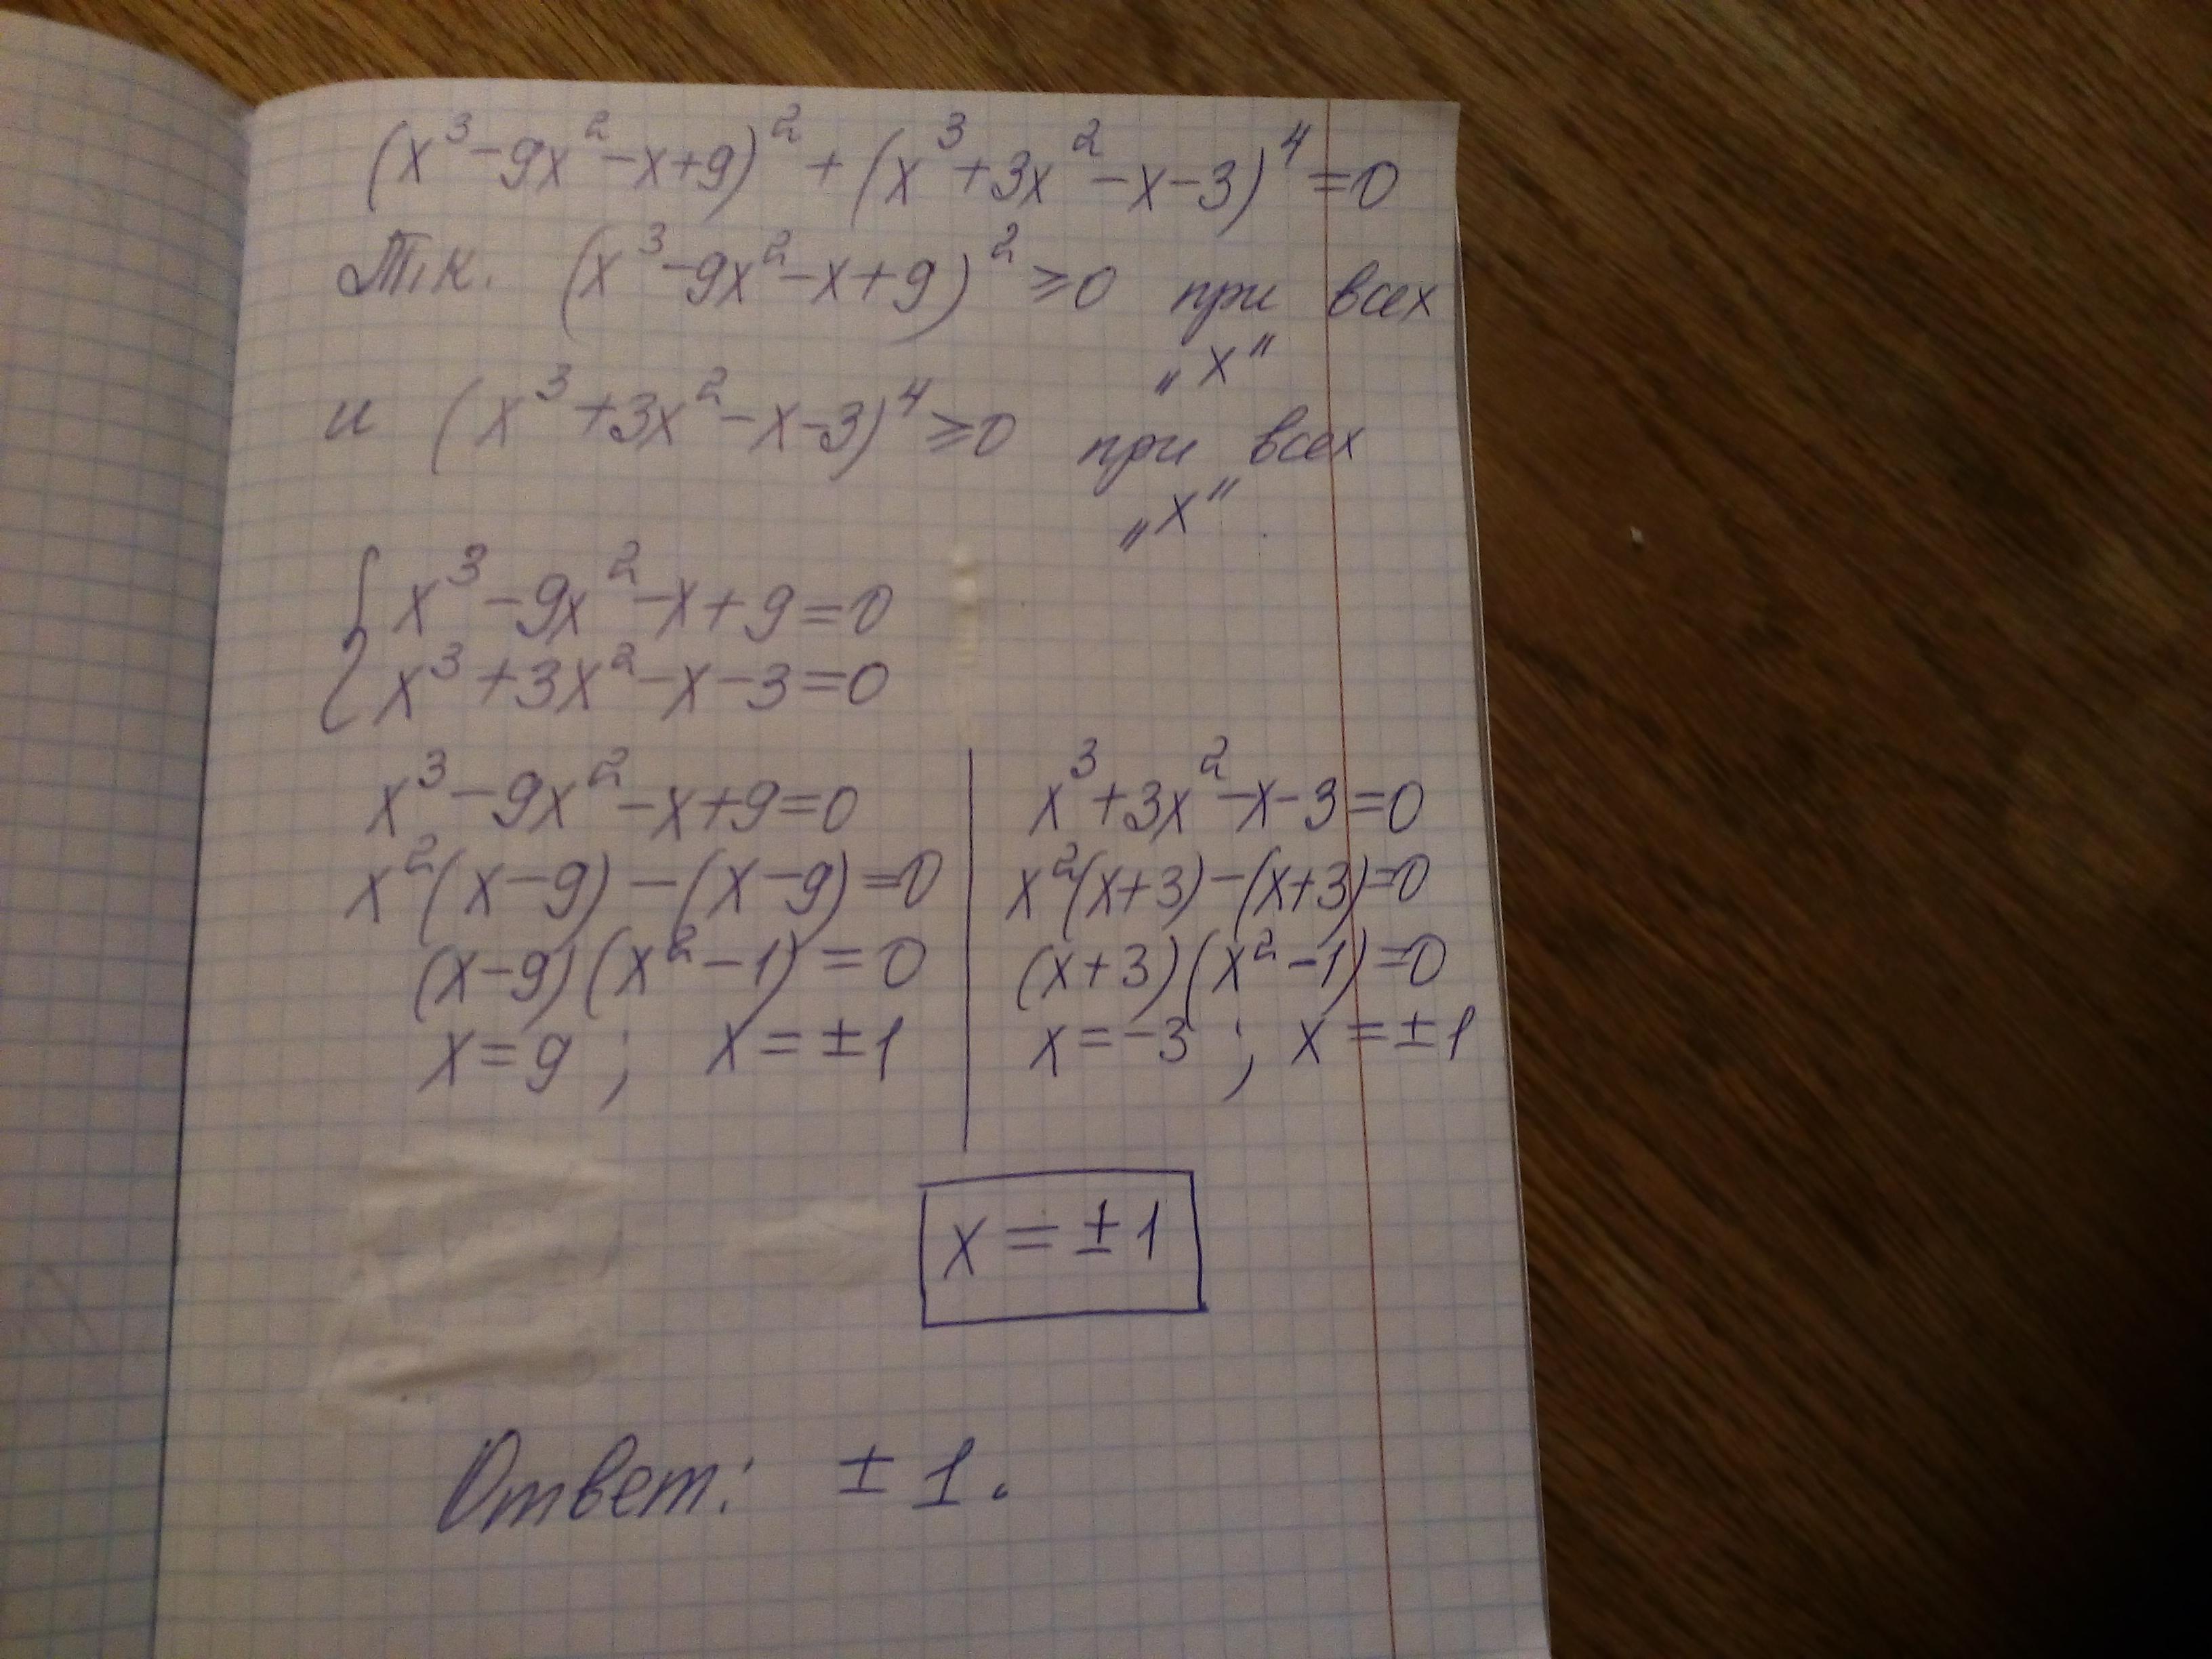 (x³-9x²-x+9)²+(x³+3x²-x-3)⁴=0
Т.к. (x³-9x²-x+9)²≥0 при всех
„x"
и (x³+3x²-x-3)⁴≥0 при всех
„x".
{x³-9x²-x+9=0
x³+3x²-x-3=0
x³-9x²-x+9=0
x²(x-9)-(x-9)=0
(x-9)(x²-1)=0
x=9; x=±1
x³+3x²-x-3=0
x²(x+3)-(x+3)=0
(x+3)(x²-1)=0
x=-3; x=±1
x=±1
Ответ: ±1.